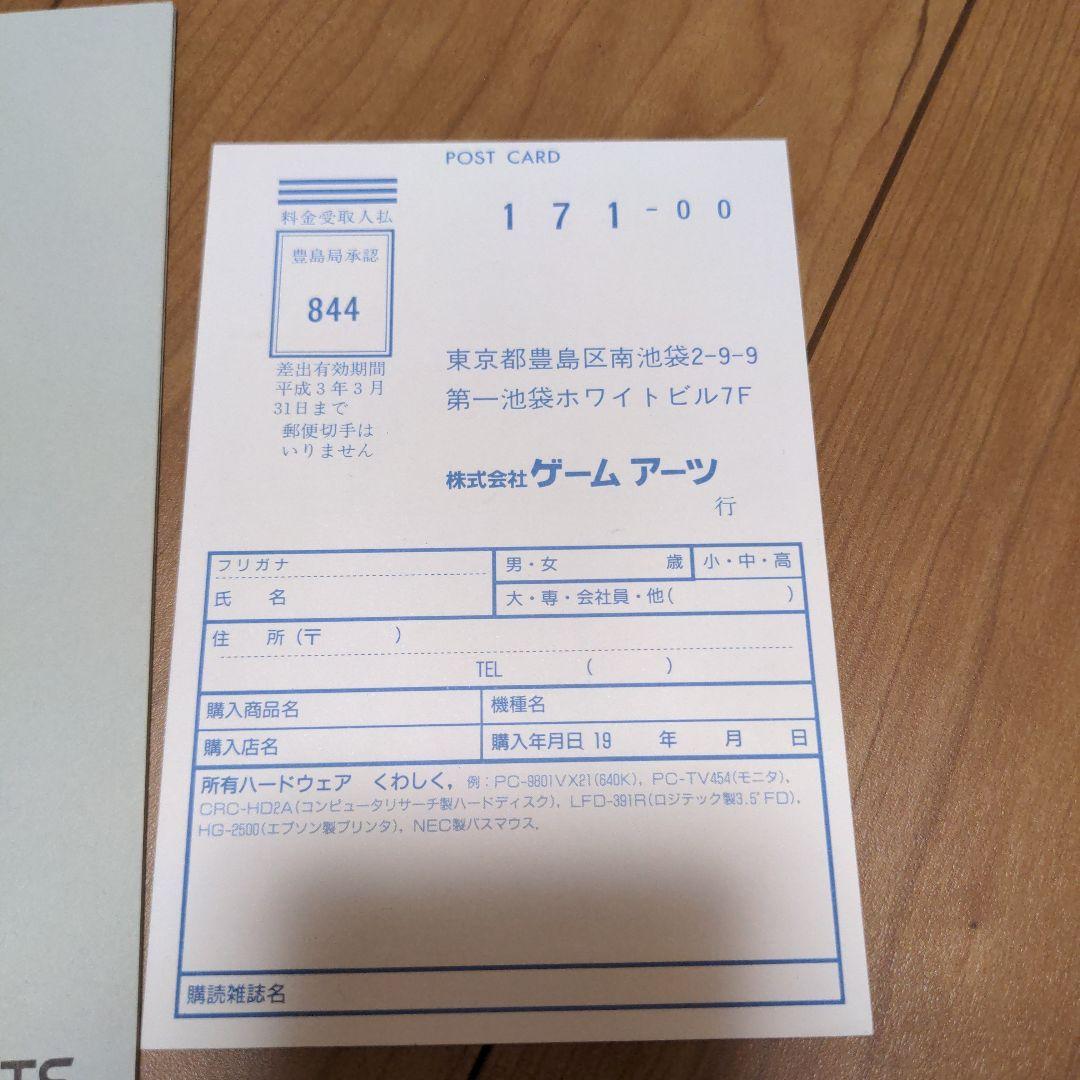 POST CARD
料金受取人払
豊島局承認
844
差出有効期間
平成3年3月
31日まで
郵便切手は
いりません
171-00
東京都豊島区南池袋2-9-9
第一池袋ホワイトビル7F
株式会社ゲームアーツ
行
フリガナ
氏 名
男・女 歳
小・中・高
大・専・会社員・他( )
住 所(〒 )
TEL ( )
購入商品名
機種名
購入店名
購入年月日 19 年 月 日
所有ハードウェア くわしく, 例:PC-9801VX21(640K), PC-TV454(モニタ),
CRC-HD2A(コンピュータリサーチ製ハードディスク), LFD-391R(ロジテック製3.5"FD),
HG-2500(エプソン製プリンタ), NEC製バスマウス.
購読雑誌名
TS